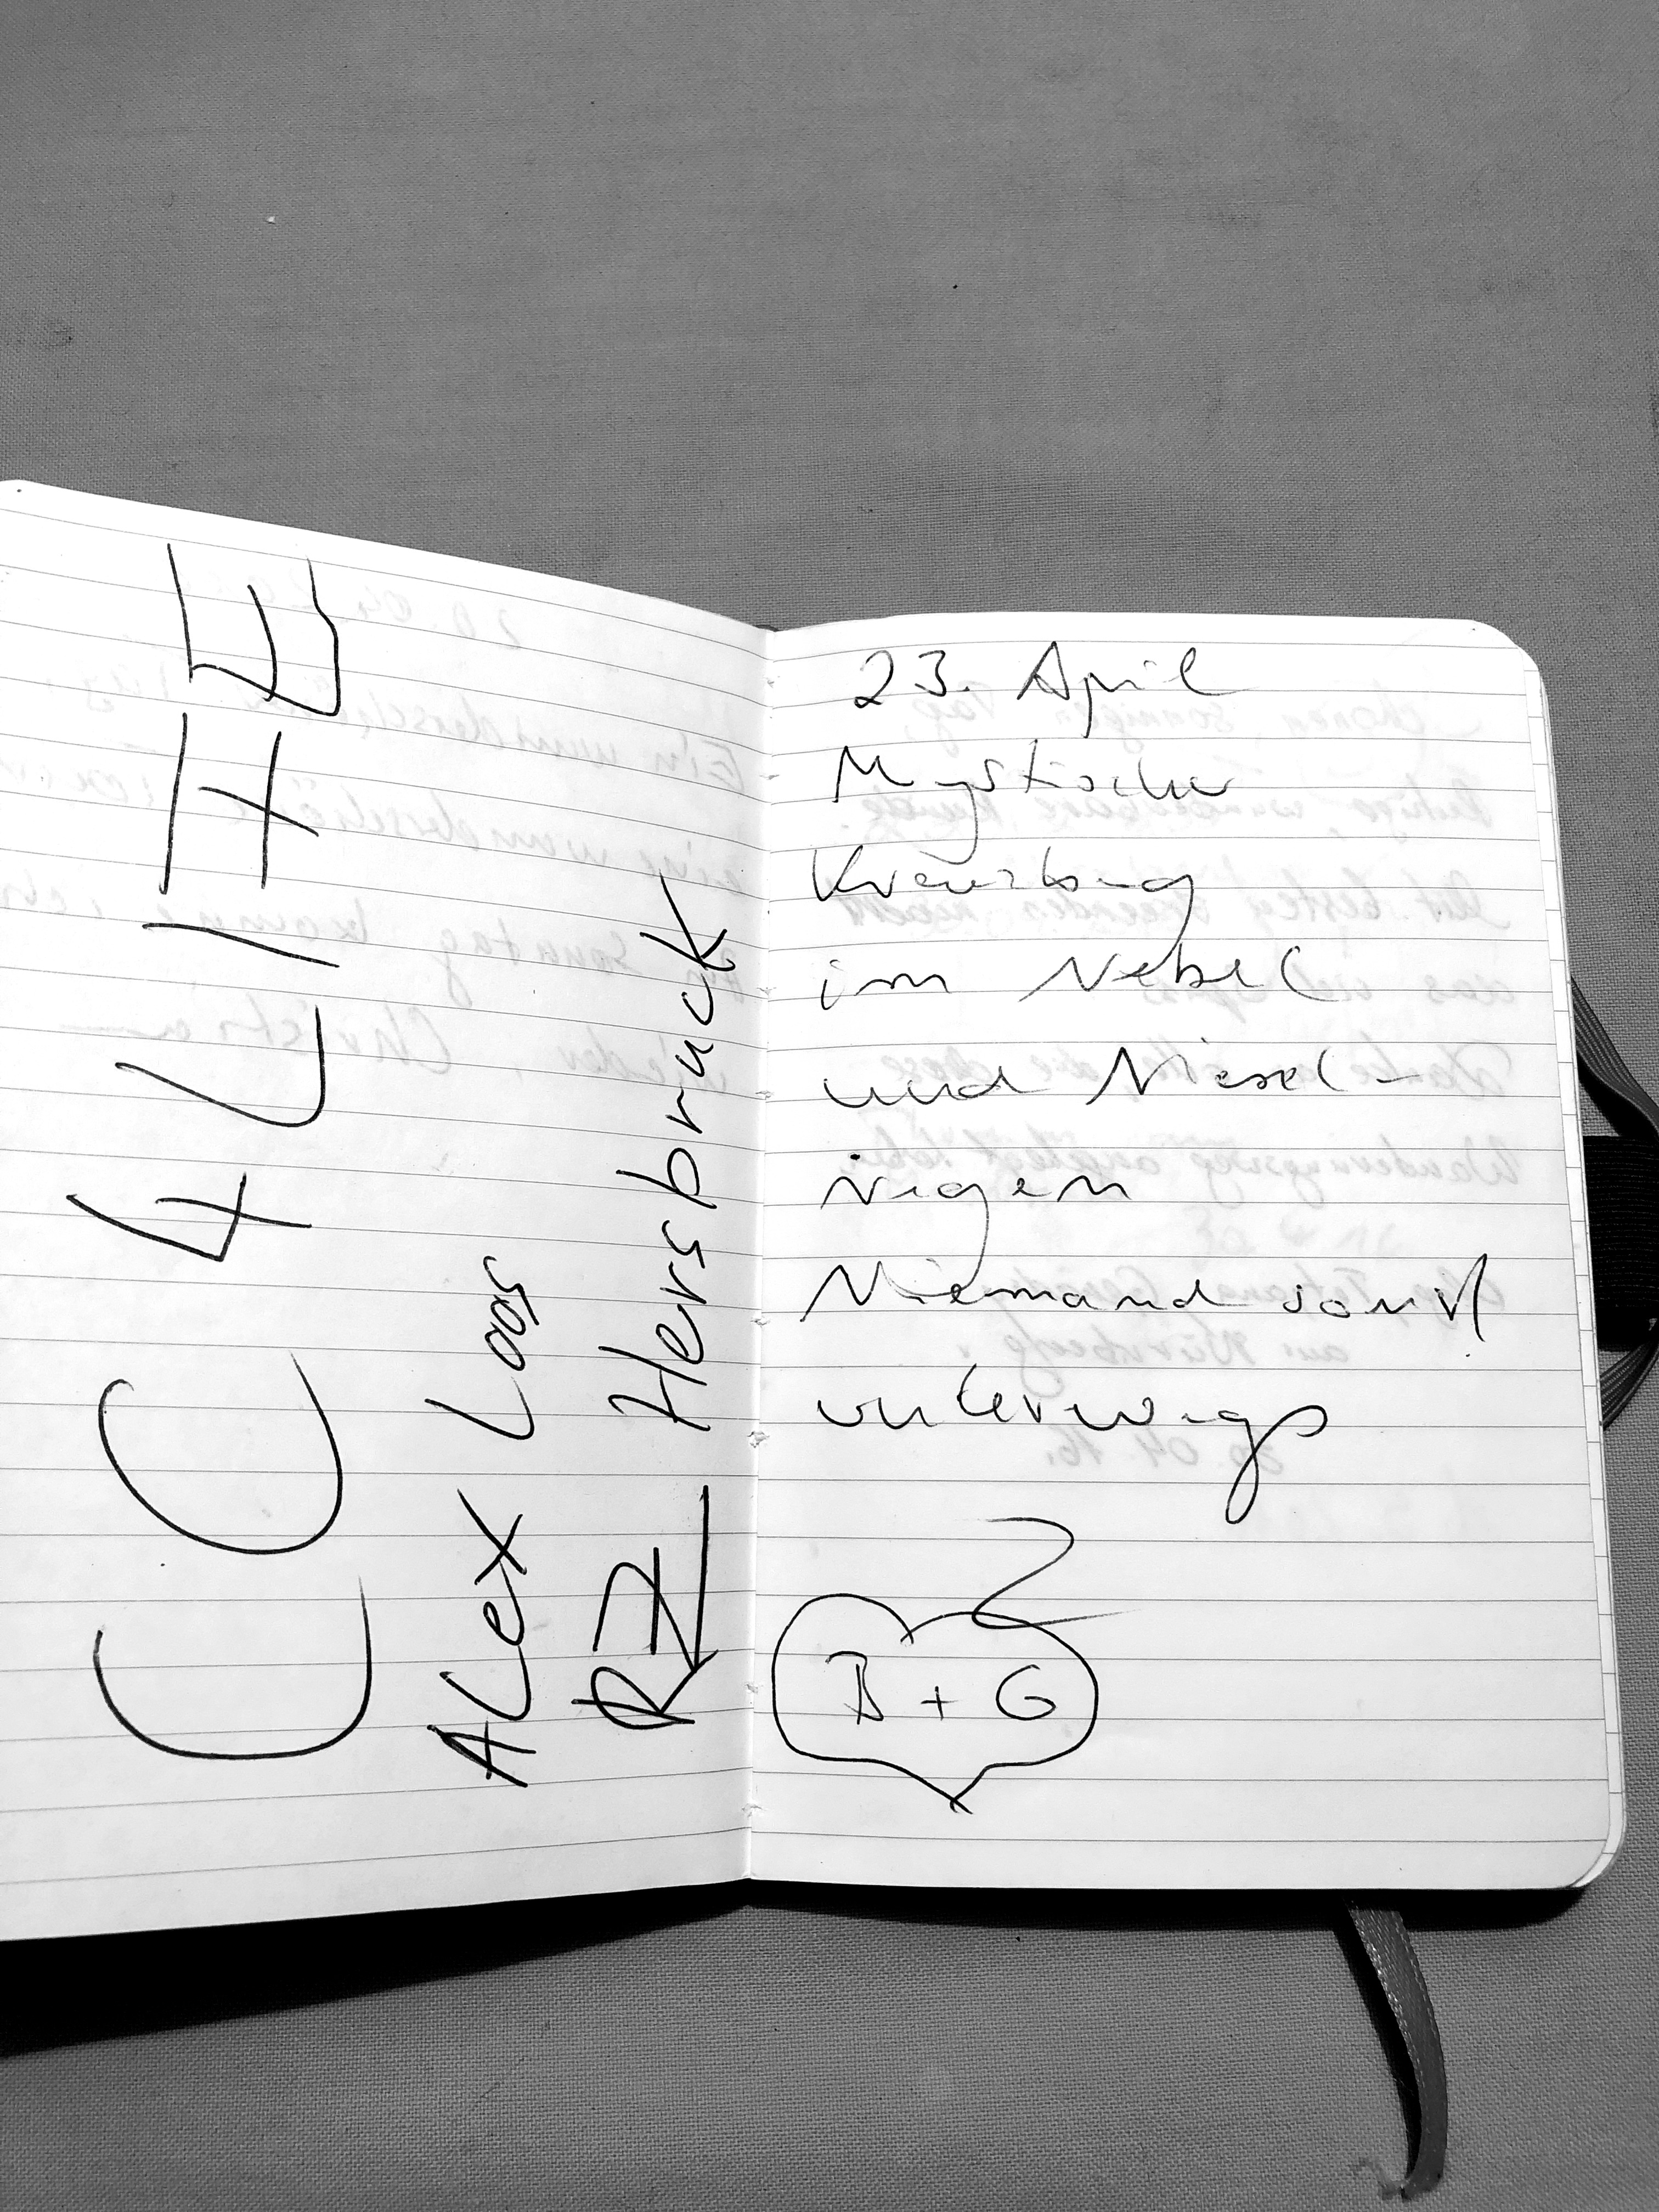 CC 4 LIFE
ALex Loos
RZ Hersbruck
23. April
Mystischer
Kreuzberg
im Nebel
und Niesel-
regen
Niemand sonst
unterwegs
B + G